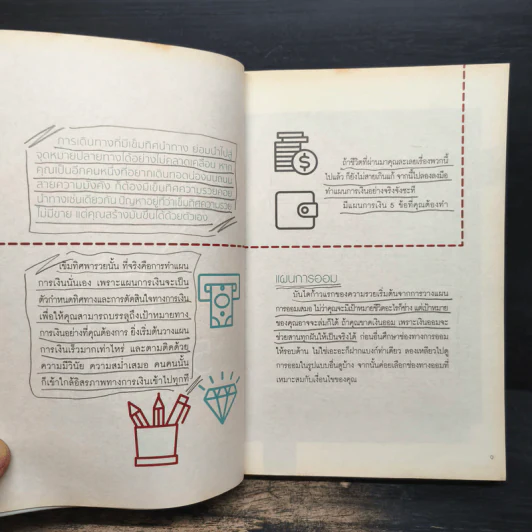 การเดินทางที่มีเข็มทิศนำทาง ย่อมนำไปสู่
จุดหมายปลายทางได้อย่างไม่คลาดเคลื่อน หาก
คุณเป็นอีกคนหนึ่งที่อยากเดินทอดน่องบนถนน
สายความมั่งคั่ง ก็ต้องมีเข็มทิศความรวยคอย
นำทางเช่นเดียวกัน ปัญหาอยู่ที่ว่าเข็มทิศความรวย
ไม่มีขาย แต่คุณสร้างมันขึ้นได้ด้วยตัวเอง
เข็มทิศพารวยนั้น ที่จริงคือการทำแผน
การเงินนั่นเอง เพราะแผนการเงินจะเป็น
ตัวกำหนดทิศทางและการตัดสินใจทางการเงิน
เพื่อให้คุณสามารถบรรลุถึงเป้าหมายทาง
การเงินอย่างที่คุณต้องการ ยิ่งเริ่มต้นวางแผน
การเงินเร็วมากเท่าไหร่ และตามติดด้วย
ความมีวินัย ความสม่ำเสมอ คนคนนั้น
ก็เข้าใกล้อิสรภาพทางการเงินเข้าไปทุกที
ถ้าชีวิตที่ผ่านมาคุณละเลยเรื่องพวกนี้
ไปแล้ว ก็ยังไม่สายเกินแก้ จากนี้ไปลองลงมือ
ทำแผนการเงินอย่างจริงจังซะที
มีแผนการเงิน 5 ข้อที่คุณต้องทำ
แผนการออม
บันไดก้าวแรกของความรวยเริ่มต้นจากการวางแผน
การออมเสมอ ไม่ว่าคุณจะมีเป้าหมายชีวิตอะไรก็ช่าง แต่เป้าหมาย
ของคุณอาจจะล่มก็ได้ ถ้าคุณขาดเงินออม เพราะเงินออมจะ
ช่วยสานทุกฝันให้เป็นจริงได้ ก่อนอื่นศึกษาช่องทางการออม
ให้รอบด้าน ไม่ใช่เอะอะก็ฝากแบงก์ท่าเดียว ลองเหลียวไปดู
การออมในรูปแบบอื่นดูบ้าง จากนั้นค่อยเลือกช่องทางออมที่
เหมาะสมกับเงื่อนไขของคุณ